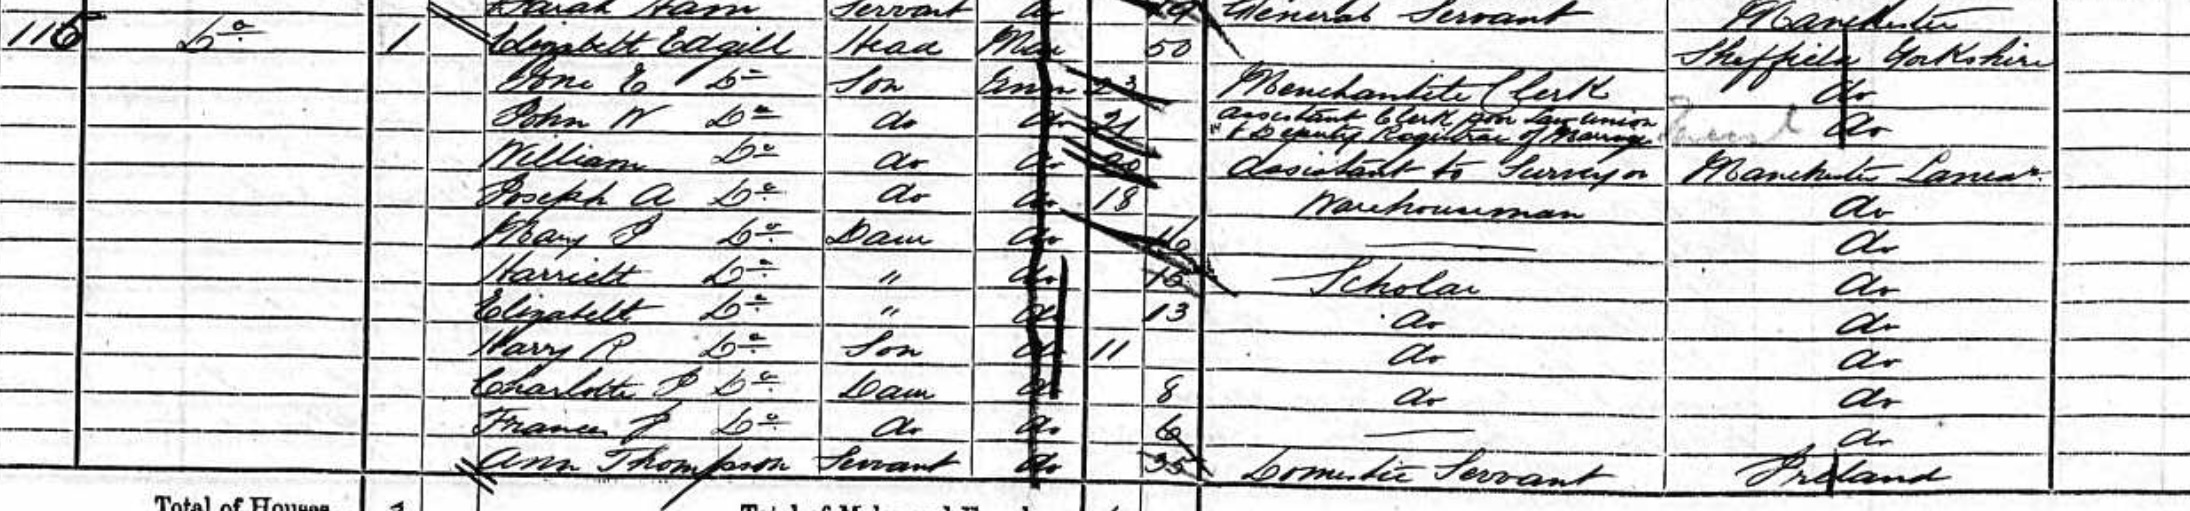 Sarah Ham Servant do 29 General Servant Manchester
116 Do 1 Elizabeth Edgill Head Mar 50 Sheffield Yorkshire
E Do Son Unm 23 Merchantile Clerk do
John W Do do do 21 assistant Clerk poor Law union & Deputy Registrar of Marriage do
William Do do do 20 Assistant to Surveyor Manchester Lancar
Joseph A Do do do 18 Warehouseman do
Mary Do Daur do 16 — do
Harriett Do " do 15 Scholar do
Elizabeth Do " do 13 do do
Harry R Do Son do 11 do do
Charlotte Do Daur do 8 do do
Frances Do do do 6 — do
Ann Thompson Servant do 35 Domestic Servant Ireland
Total of Houses